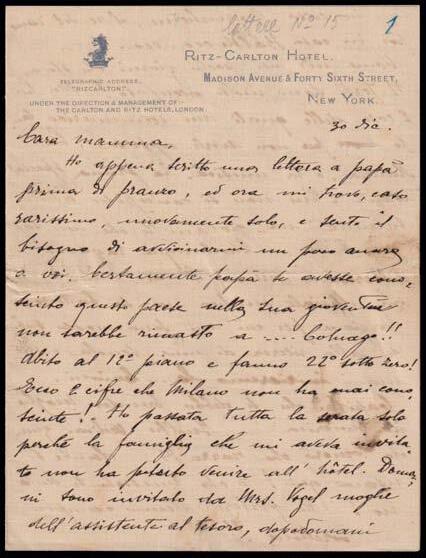 lettera Nº 15
1
RITZ-CARLTON HOTEL.
MADISON AVENUE & FORTY SIXTH STREET,
NEW YORK.
TELEGRAPHIC ADDRESS,
"RIZCARLTON".
UNDER THE DIRECTION & MANAGEMENT OF
THE CARLTON AND RITZ HOTELS, LONDON.
30 Dic.
Cara mamma,
Ho appena scritto una lettera a papà
prima di pranzo, ed ora mi trovo, caso
rarissimo, nuovamente solo, e sento il
bisogno di avvicinarmi un poco ancora
a voi. Certamente papà se avesse cono-
sciuto questo paese nella sua gioventù
non sarebbe rimasto a .... Colnago!!
Abito al 12º piano e fanno 22º sotto zero!
Ecco 2 cifre che Milano non ha mai cono-
sciute! Ho passata tutta la serata solo
perchè la famiglia che mi aveva invita-
to non ha potuto venire all' hôtel. Doma-
ni sono invitato da Mrs. Vogel moglie
dell'assistente al tesoro, dopodomani